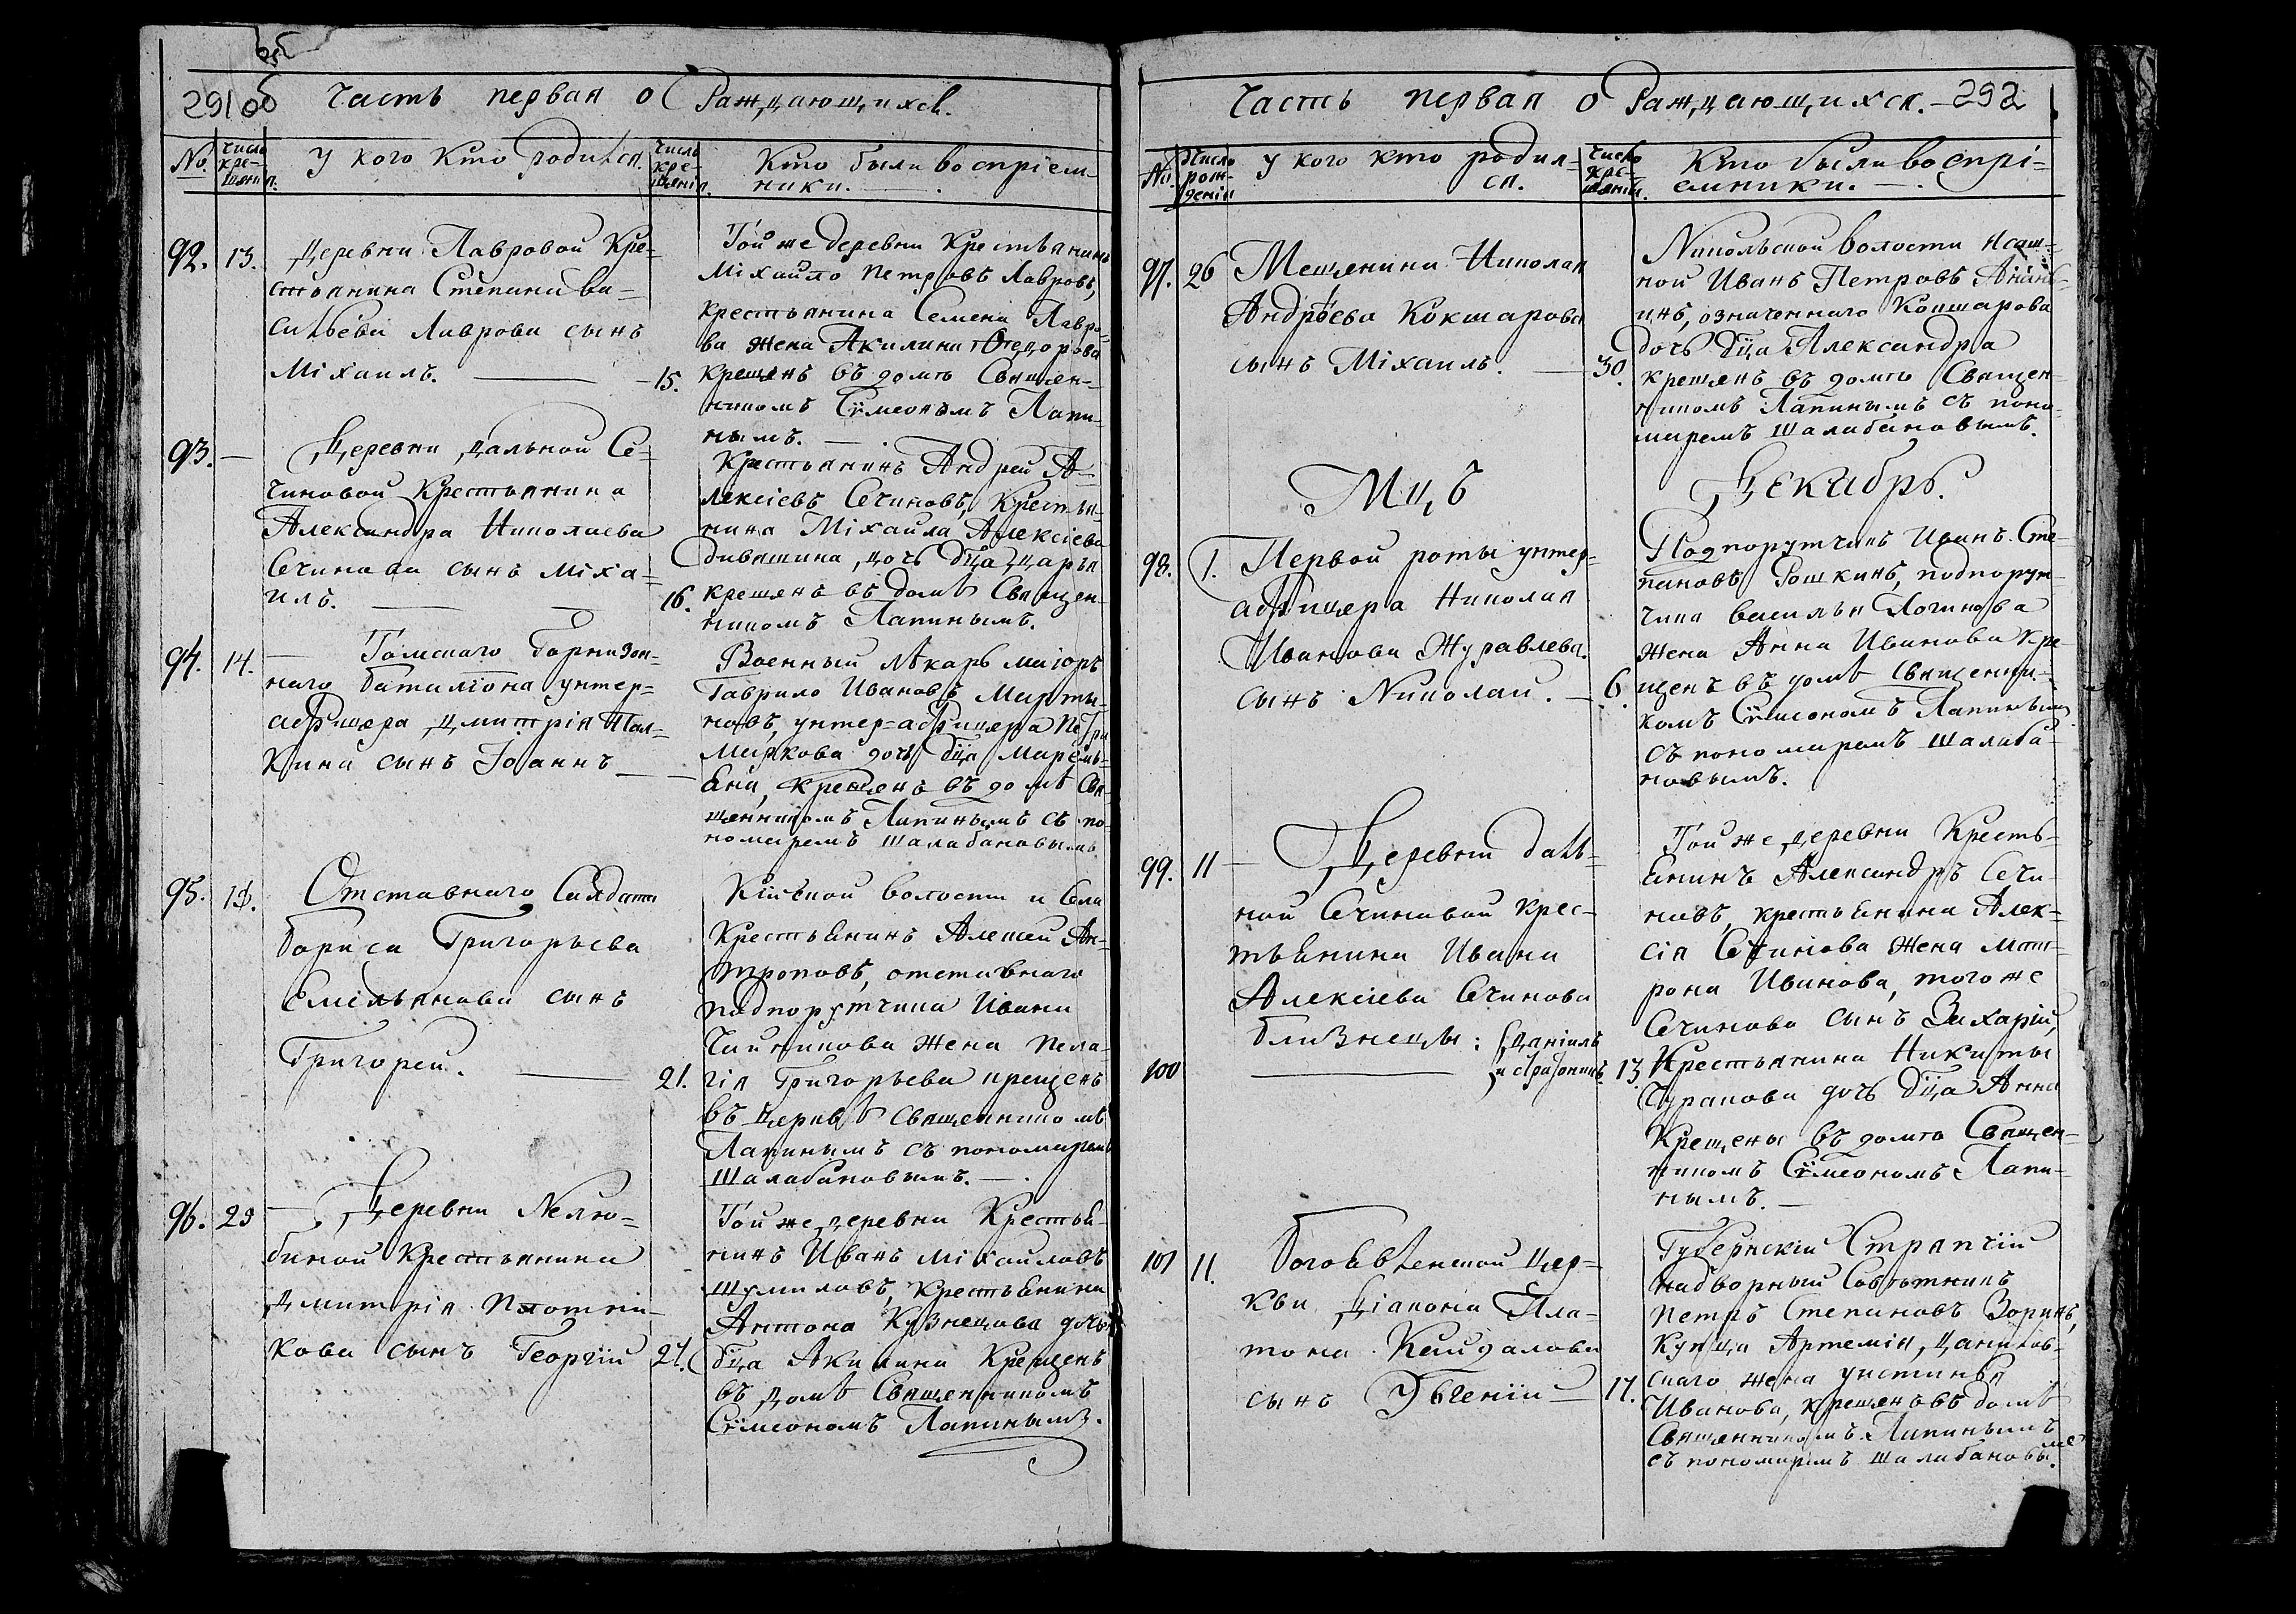 291 об
Часть первая о Раждающихся.
№.
Числ.
кре-
щенія.
У кого Кто родился.
Число
кре-
щенія.
Кто были воспріем-
ники.
92.
13.
Деревни Лавровой Кре-
стьянина Степана Ва-
сильева Лаврова сынъ
Міхаилъ.
15.
Той же деревни Крестьянинъ
Міхайло Петровъ Лавровъ,
крестьянина Семена Лавро-
ва жена Акилина Ѳедорова
крещенъ въ домѣ Священ-
никомъ Сѵмеономъ Лапи-
нымъ.
93.
Деревни Дальной Се-
чиновой Крестьянина
Александра Николаева
Сечинова сынъ Міха-
илъ.
16.
Крестьянинъ Андрей А-
лексіевъ Сечиновъ, Кресть-
нина Міхаила Алексіева
дочь дѣа Дарья
крещенъ въ домѣ Священ-
никомъ Лапинымъ.
94.
14.
Томскаго Горнизон-
наго баталіона унтер=
афицера Дмитрія Пал-
кина сынъ Іоаннъ
Военный лѣкарь маіоръ
Гаврило Ивановъ Марты-
новъ, унтер=афицера Петра
Маркова дочь дѣа Марѳь-
ѣна, крещенъ въ домѣ Свя-
щенникомъ Лапинымъ съ по-
номаремъ Шалабановымъ
95.
Отставнаго Салдата
бориса Григорьева
Емільянова сынъ
Григорей.
21.
Кіевской волости и Села
Крестьѣнинъ Алексей Ан-
троповъ, отставнаго
подпорутчика Ивана
Чайникова жена Пела-
гія Григорьева крещенъ
въ церквѣ священникомъ
Лапинымъ съ пономаремъ
Шалабановымъ.
96.
23
Деревни Нелю-
биной Крестьянина
Дмитрія Плотни-
кова сынъ Георгій
27.
Той же деревни Крестьѣ-
нинъ Иванъ Міхаиловъ
Шумиловъ, Крестьѣнина
Антона Кузнецова дочь
дѣа Акилина Крещенъ
въ домѣ Священникомъ
Сѵмеономъ Лапинымъ.
Часть первая о Раждающихся.
292
№.
Число
рож-
денія
У кого кто родил-
ся.
Число
кре-
щенія.
Кто были воспрі-
емники.
97.
26
Мещенина Николая
Андрѣева Кокшарова
сынъ Міхаилъ.
30.
Никольской волости
ной Иванъ Петровъ Анань-
инъ, означеннаго Кокшарова
дочь дѣа Александра
крещенъ въ домѣ Священ-
никомъ Лапинымъ съ поно-
маремъ Шалабановымъ.
Мцъ
Декабрь.
98.
1.
Первой роты унтер-
афицера Николая
Иванова Журавлева
сынъ Николай.
6.
Подпорутчикъ Иванъ Сте-
пановъ Рошкинъ, подпорут-
чика василья Логинова
жена Анна Иванова кре-
щенъ въ домѣ Священни-
комъ Сѵмеономъ Лапинымъ
съ пономаремъ Шалаба-
новымъ.
99.
11
Деревни даль-
ной Сечиновой крес-
тьѣнина Ивана
Алексіева Сечинова
близнецы: Даніилъ
100
13.
Той же деревни Кресть-
ѣнинъ Александръ Сечи-
новъ, крестьѣнина Алек-
сія Сечинова жена Мат-
рона Иванова, того же
Сечинова сынъ Захарій,
Крестьянина Никиты
Суранова дочь дѣа Анна
Крещены въ домѣ Священ-
никомъ Сѵмеономъ Лапи-
нымъ.
101
11.
богоѣвленской Цер-
кви Діакона Пла-
тона Кайдалова
сынъ Эвгеній
17.
Губернскій Стряпчій
надворный Совѣтникъ
Петръ Степановъ Зоринъ,
Купца Артемія Данилов-
скаго жена устинья
Иванова, крещенъ въ домѣ
Священникомъ Лапинымъ
съ пономаремъ Шалабановымъ.